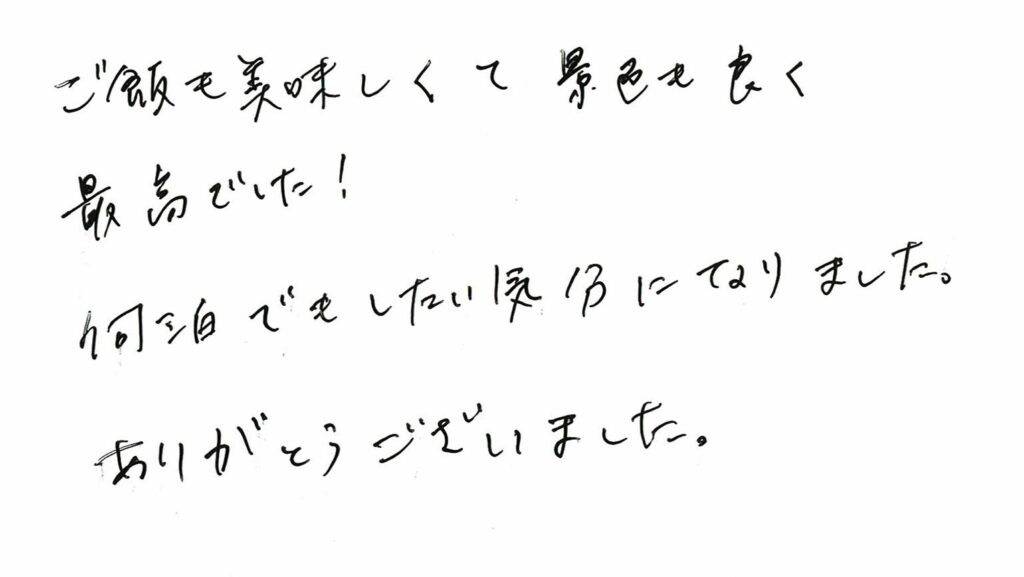 ご飯も美味しくて景色も良く
最高でした!
何泊でもしたい気分になりました。
ありがとうございました。